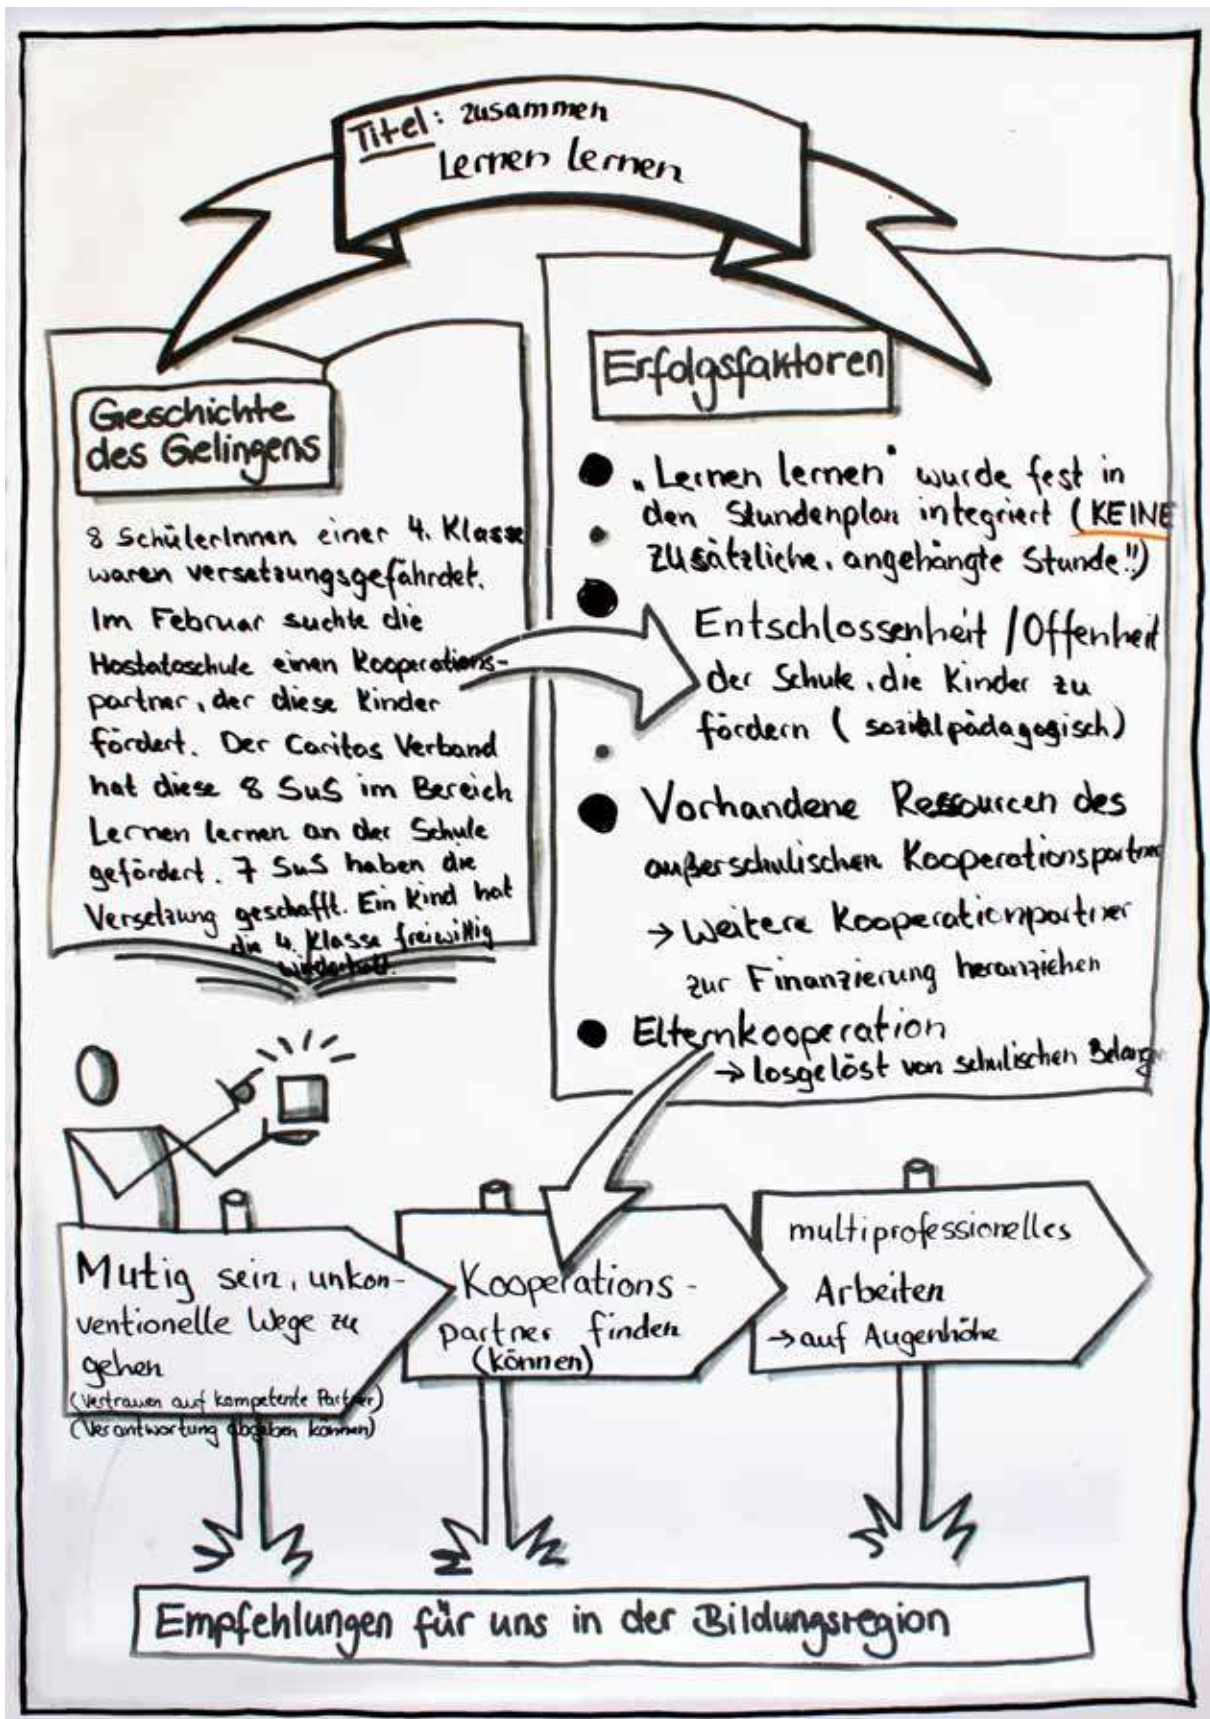 Titel: zusammen
Lernen lernen
Geschichte
des Gelingens
8 SchülerInnen einer 4. Klasse
waren versetzungsgefährdet.
Im Februar suchte die
Hostatoschule einen Kooperations-
partner, der diese Kinder
fördert. Der Caritas Verband
hat diese 8 SuS im Bereich
Lernen lernen an der Schule
gefördert. 7 SuS haben die
Versetzung geschafft. Ein Kind hat
die 4. Klasse freiwillig
wiederholt.
Erfolgsfaktoren
„Lernen lernen" wurde fest in
den Stundenplan integriert (KEINE
zusätzliche, angehängte Stunde!!)
Entschlossenheit / Offenheit
der Schule, die Kinder zu
fördern (sozialpädagogisch)
Vorhandene Ressourcen des
außerschulischen Kooperationspartner
→ Weitere Kooperationpartner
zur Finanzierung heranziehen
Elternkooperation
→ losgelöst von schulischen Belangen
Mutig sein, unkon-
ventionelle Wege zu
gehen
(Vertrauen auf kompetente Partner)
(Verantwortung abgeben können)
Kooperations-
partner finden
(können)
multiprofessionelles
Arbeiten
→ auf Augenhöhe
Empfehlungen für uns in der Bildungsregion